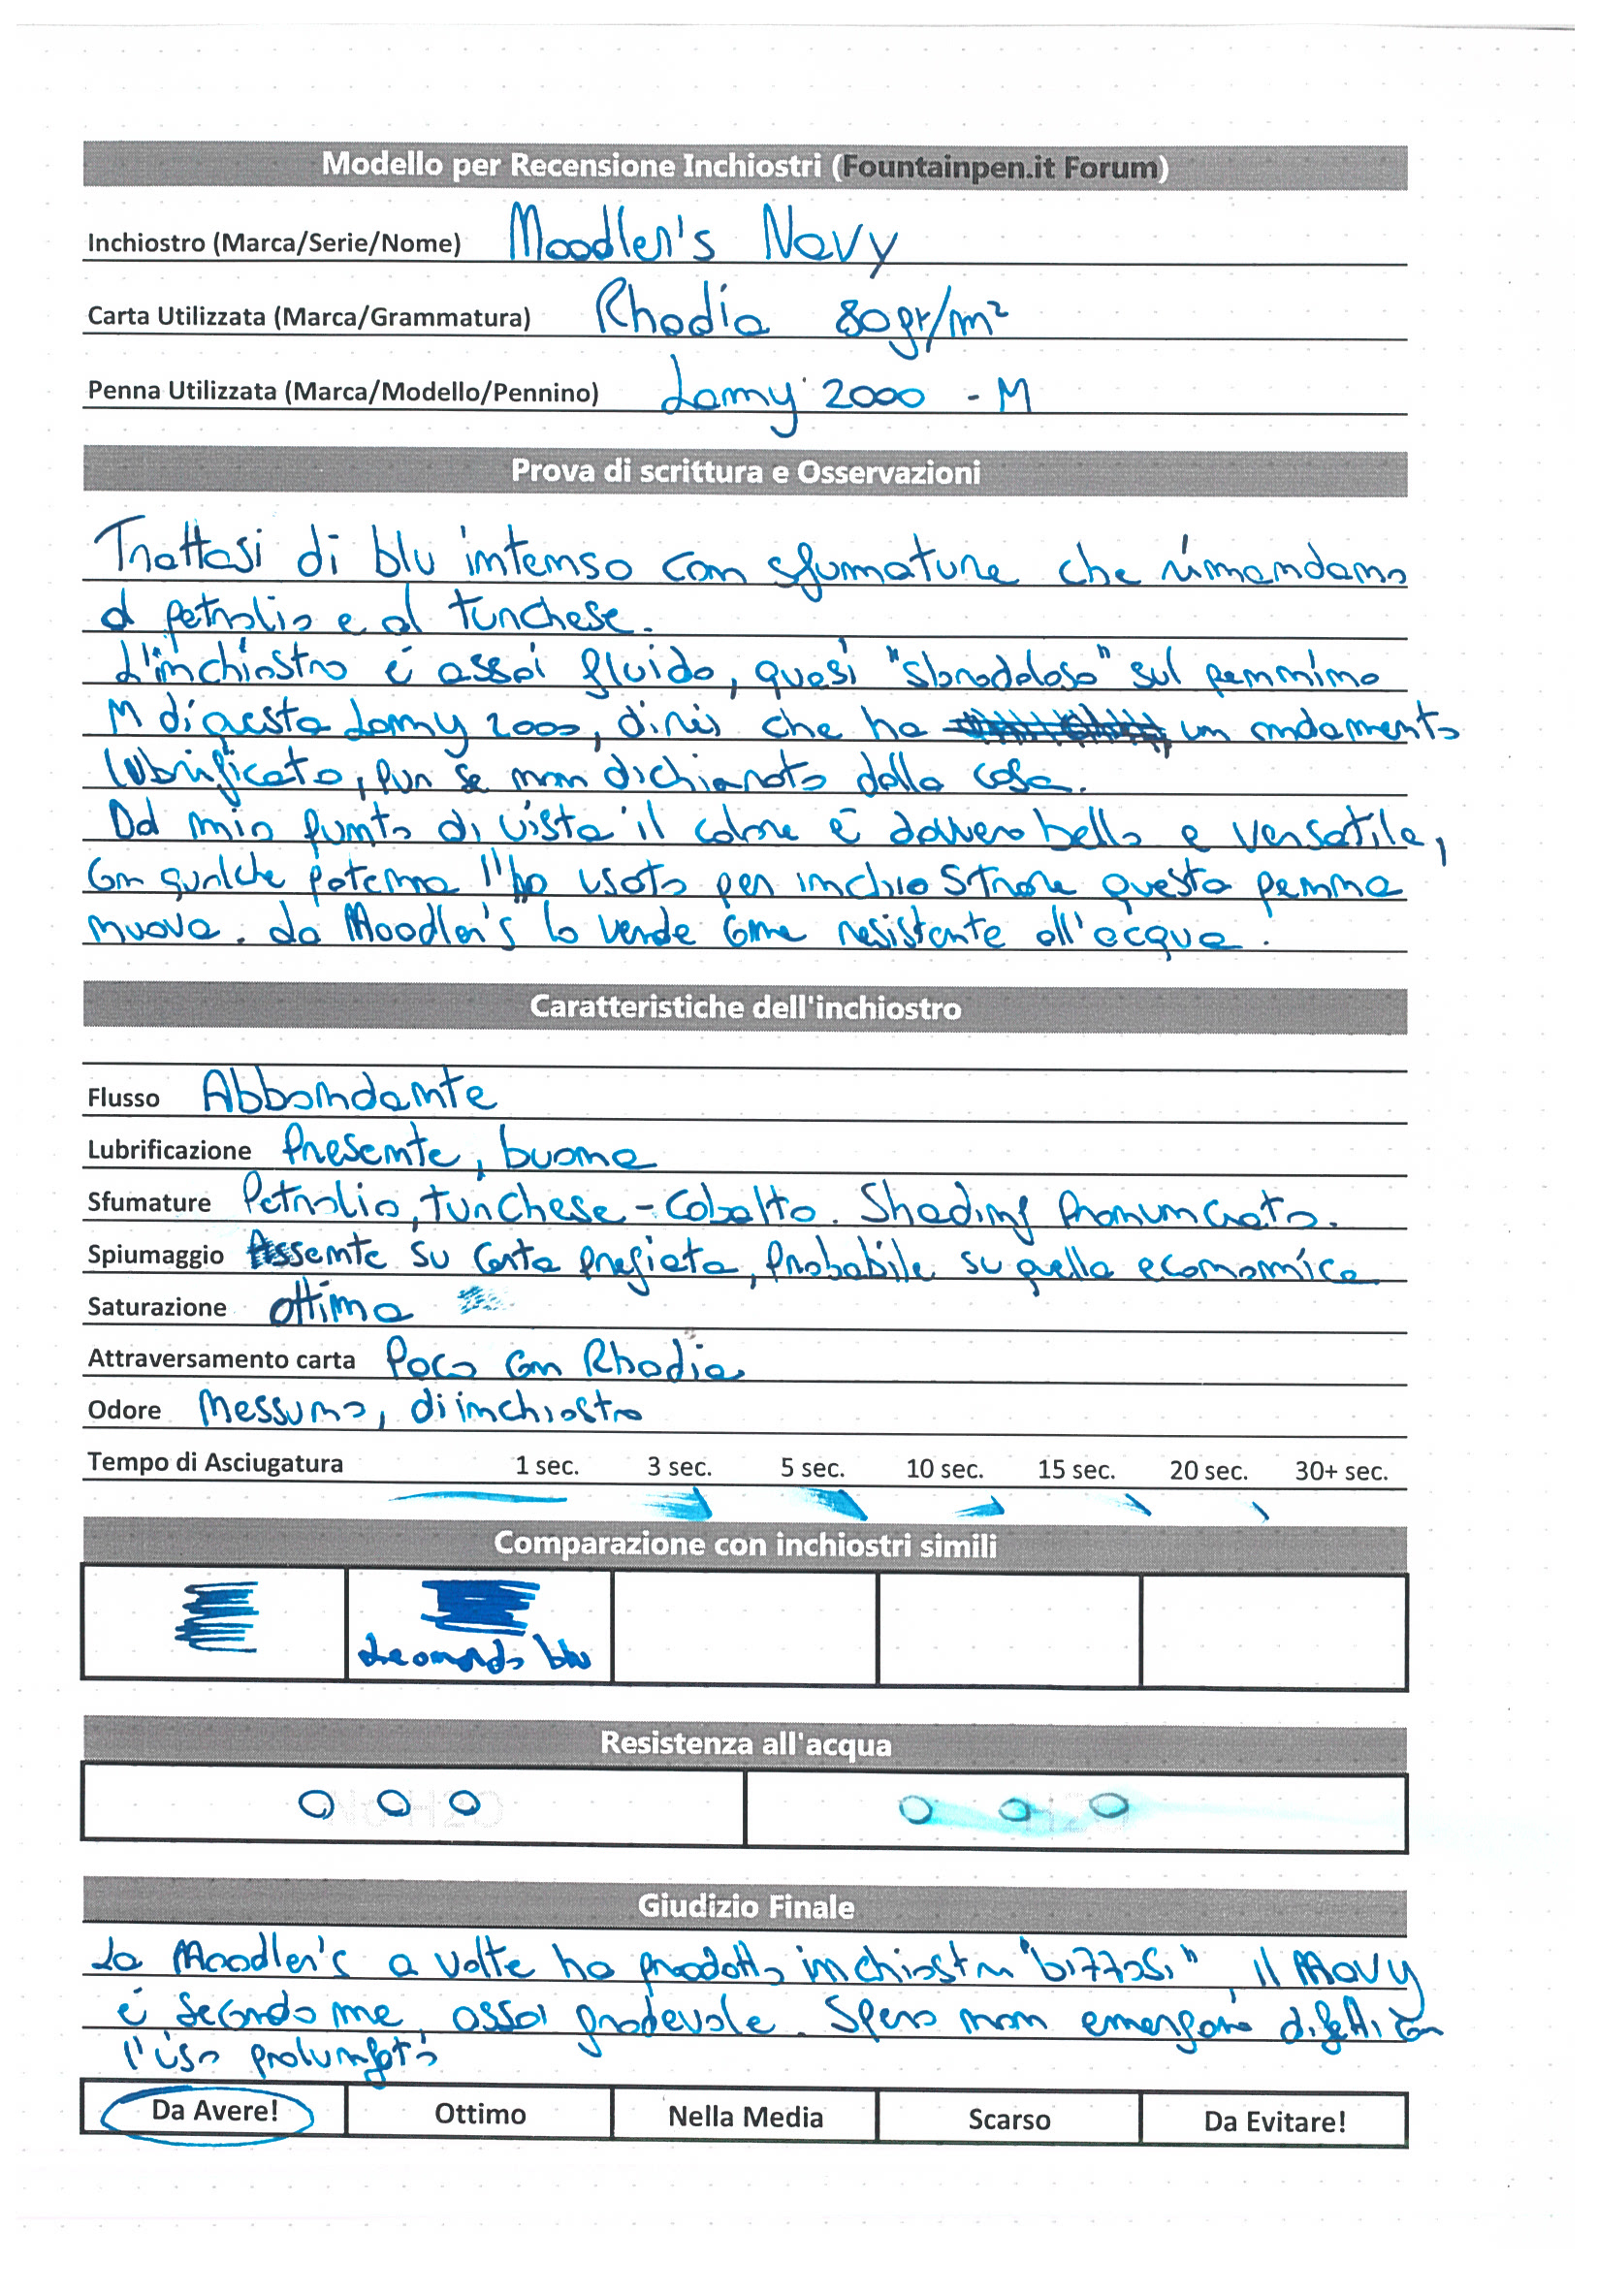 Modello per Recensione Inchiostri (Fountainpen.it Forum)
Inchiostro (Marca/Serie/Nome) Noodler's Navy
Carta Utilizzata (Marca/Grammatura) Rhodia 80gr/m²
Penna Utilizzata (Marca/Modello/Pennino) Lamy 2000 - M
Prova di scrittura e Osservazioni
Trattasi di blu intenso con sfumature che rimandano
al petrolio e al turchese.
L'inchiostro è assai fluido, quasi "sbrodoloso" sul pennino
M di questa Lamy 2000, direi che ha un andamento
lubrificato, pur se non dichiarato dalla casa.
Dal mio punto di vista il colore è davvero bello e versatile,
con qualche patema l'ho usato per inchiostrare questa penna
nuova. La Noodler's lo vende come resistente all'acqua.
Caratteristiche dell'inchiostro
Flusso Abbondante
Lubrificazione Presente, buona
Sfumature Petrolio, turchese - Cobalto. Shading Pronunciato.
Spiumaggio Assente su carta pregiata, Probabile su quella economica
Saturazione ottima
Attraversamento carta Poco con Rhodia
Odore Nessuno, di inchiostro
Tempo di Asciugatura 1 sec. 3 sec. 5 sec. 10 sec. 15 sec. 20 sec. 30+ sec.
Comparazione con inchiostri simili
Leonardo blu
Resistenza all'acqua
Giudizio Finale
La Noodler's a volte ha prodotto inchiostri "bizzosi" il Navy
è secondo me assai gradevole. Spero non emergano difetti con
l'uso prolungato
Da Avere! Ottimo Nella Media Scarso Da Evitare!